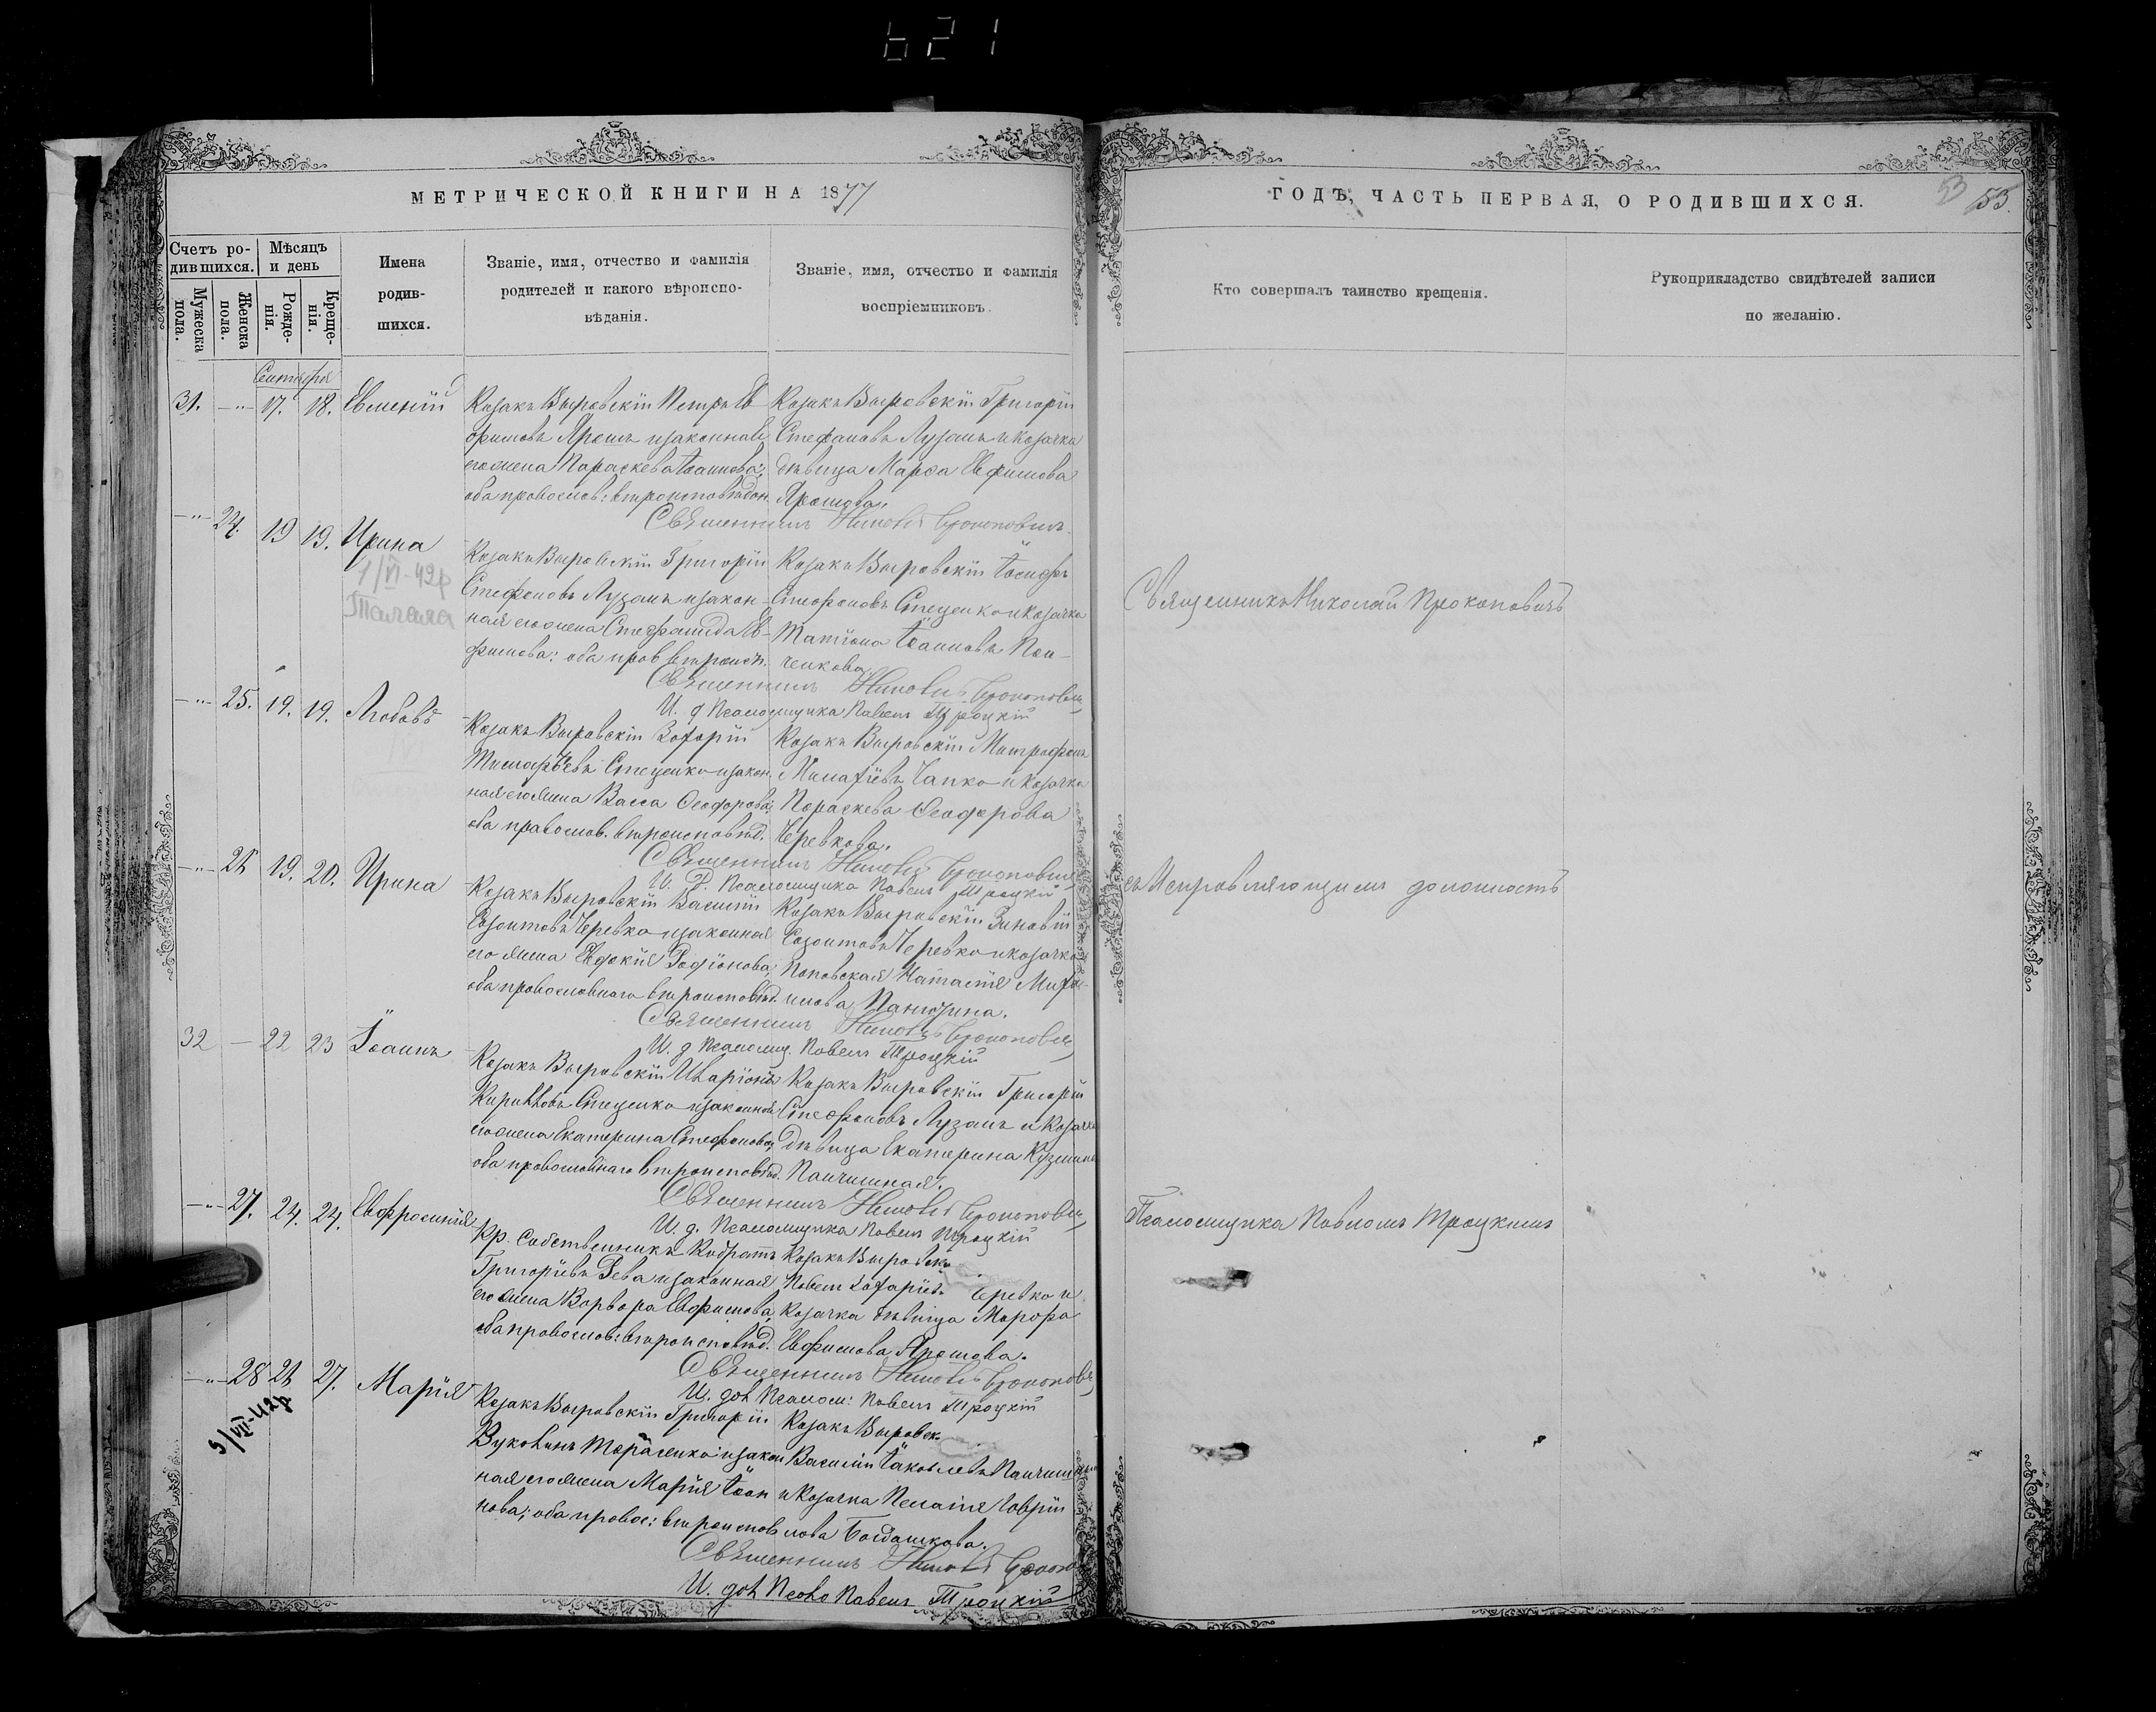 621
МЕТРИЧЕСКОЙ КНИГИ НА 1877
ГОДЪ, ЧАСТЬ ПЕРВАЯ, О РОДИВШИХСЯ.
53
Счетъ ро-
дившихся.
Мѣсяцъ
и день
Мужеска
пола.
Женска
пола.
Рожде-
нія.
Креще-
нія.
Имена
родив-
шихся.
Званіе, имя, отчество и фамилія
родителей и какого вѣроиспо-
вѣданія.
Званіе, имя, отчество и фамилія
воспріемниковъ.
Кто совершалъ таинство крещенія.
Рукоприкладство свидѣтелей записи
по желанію.
Сентября
31. 17. 18. Евменій
Козакъ Выровскій Петръ Ев
фимовъ Ярошъ и законная
его жена Параскева Іоаннова;
оба правослов: вѣроисповѣдан.
Козакъ Выровскій Григорій
Стефановъ Лузанъ и козачка
дѣвица Марѳа Евфимова
Ярошова.
Священникъ Николай Прокоповичъ
24. 19 19. Ирина
1/VI-42р
Козакъ Выровскій Григорій
Стефановъ Лузанъ и закон-
ная его жена Стефанида Ев-
фимова: оба прав вѣроисп.
Козакъ Выровскій Іосифъ
Стефановъ Стеценко и козачка
Татіана Іоаннова Пен-
ченкова
Священникъ Николай Прокопович
И. д Псаломщика Павелъ Троцкій
25. 19. 19. Любовь
Козакъ Выровскій Захарій
Тимофѣевъ Стеценко и закон.
ная его жена Васса Ѳеодорова;
оба правослов. вѣроисповѣд.
Козакъ Выровскій Митрофанъ
Чапко и козачка
Параскева Ѳеодорова
Черевкова.
Священникъ Николай Прокопович
И. Д. Псаломщика Павелъ Троцкій
26 19. 20. Ирина
Козакъ Выровскій Василій
Созонтовъ Черевко и законная
его жена Евдокія Родіонова;
оба православнаго вѣроисповѣд.
Козакъ Выровскій Зиновій
Созонтовъ Черевко и козачка
Поповская Наталія Миха-
илова
Священникъ Николай Прокопович
И. д Псаломщ. Павелъ Троцкій
32 22 23 Іоаннъ
Козакъ Выровскій Иларіонъ
Кирилловъ Стеценко и законная
его жена Екатерина Стефанова;
оба православнаго вѣроисповѣд.
Козакъ Выровскій Григорій
Стефановъ Лузанъ и козачка
дѣвица Екатерина Кузмина
Панчишная.
Священникъ Николай Прокопович
И. д. Псаломщика Павелъ Троцкій
27. 24. 24. Евфросинія
Кр. Собственникъ Кодратъ
Григоріевъ Рева и законная
его жена Варвара Евфимова;
оба правослов: вѣроисповѣд.
Козакъ Выровск.
Павелъ Захаріев. Черевко и
козачка дѣвица Марѳа
Евфимова Ярошова.
Священникъ Николай Прокопов
И. дол Псалом: Павелъ Троцкій
28 26 27. Марія
5/VII-42р
Козакъ Выровскій Григорій
Тарасенко и закон
ная его жена Марія Іоан
нова; оба правос: вѣроисповѣ
Козакъ Выровск.
Василій Іаковлевъ
и козачка Пелагія Гаврии
лова Богдашкова.
Священникъ Николай
И. дол Псало Павелъ Троцкій
Священникъ Николай Прокоповичъ
съ Исправляющимъ должность
Псаломщика Павломъ Троцкимъ